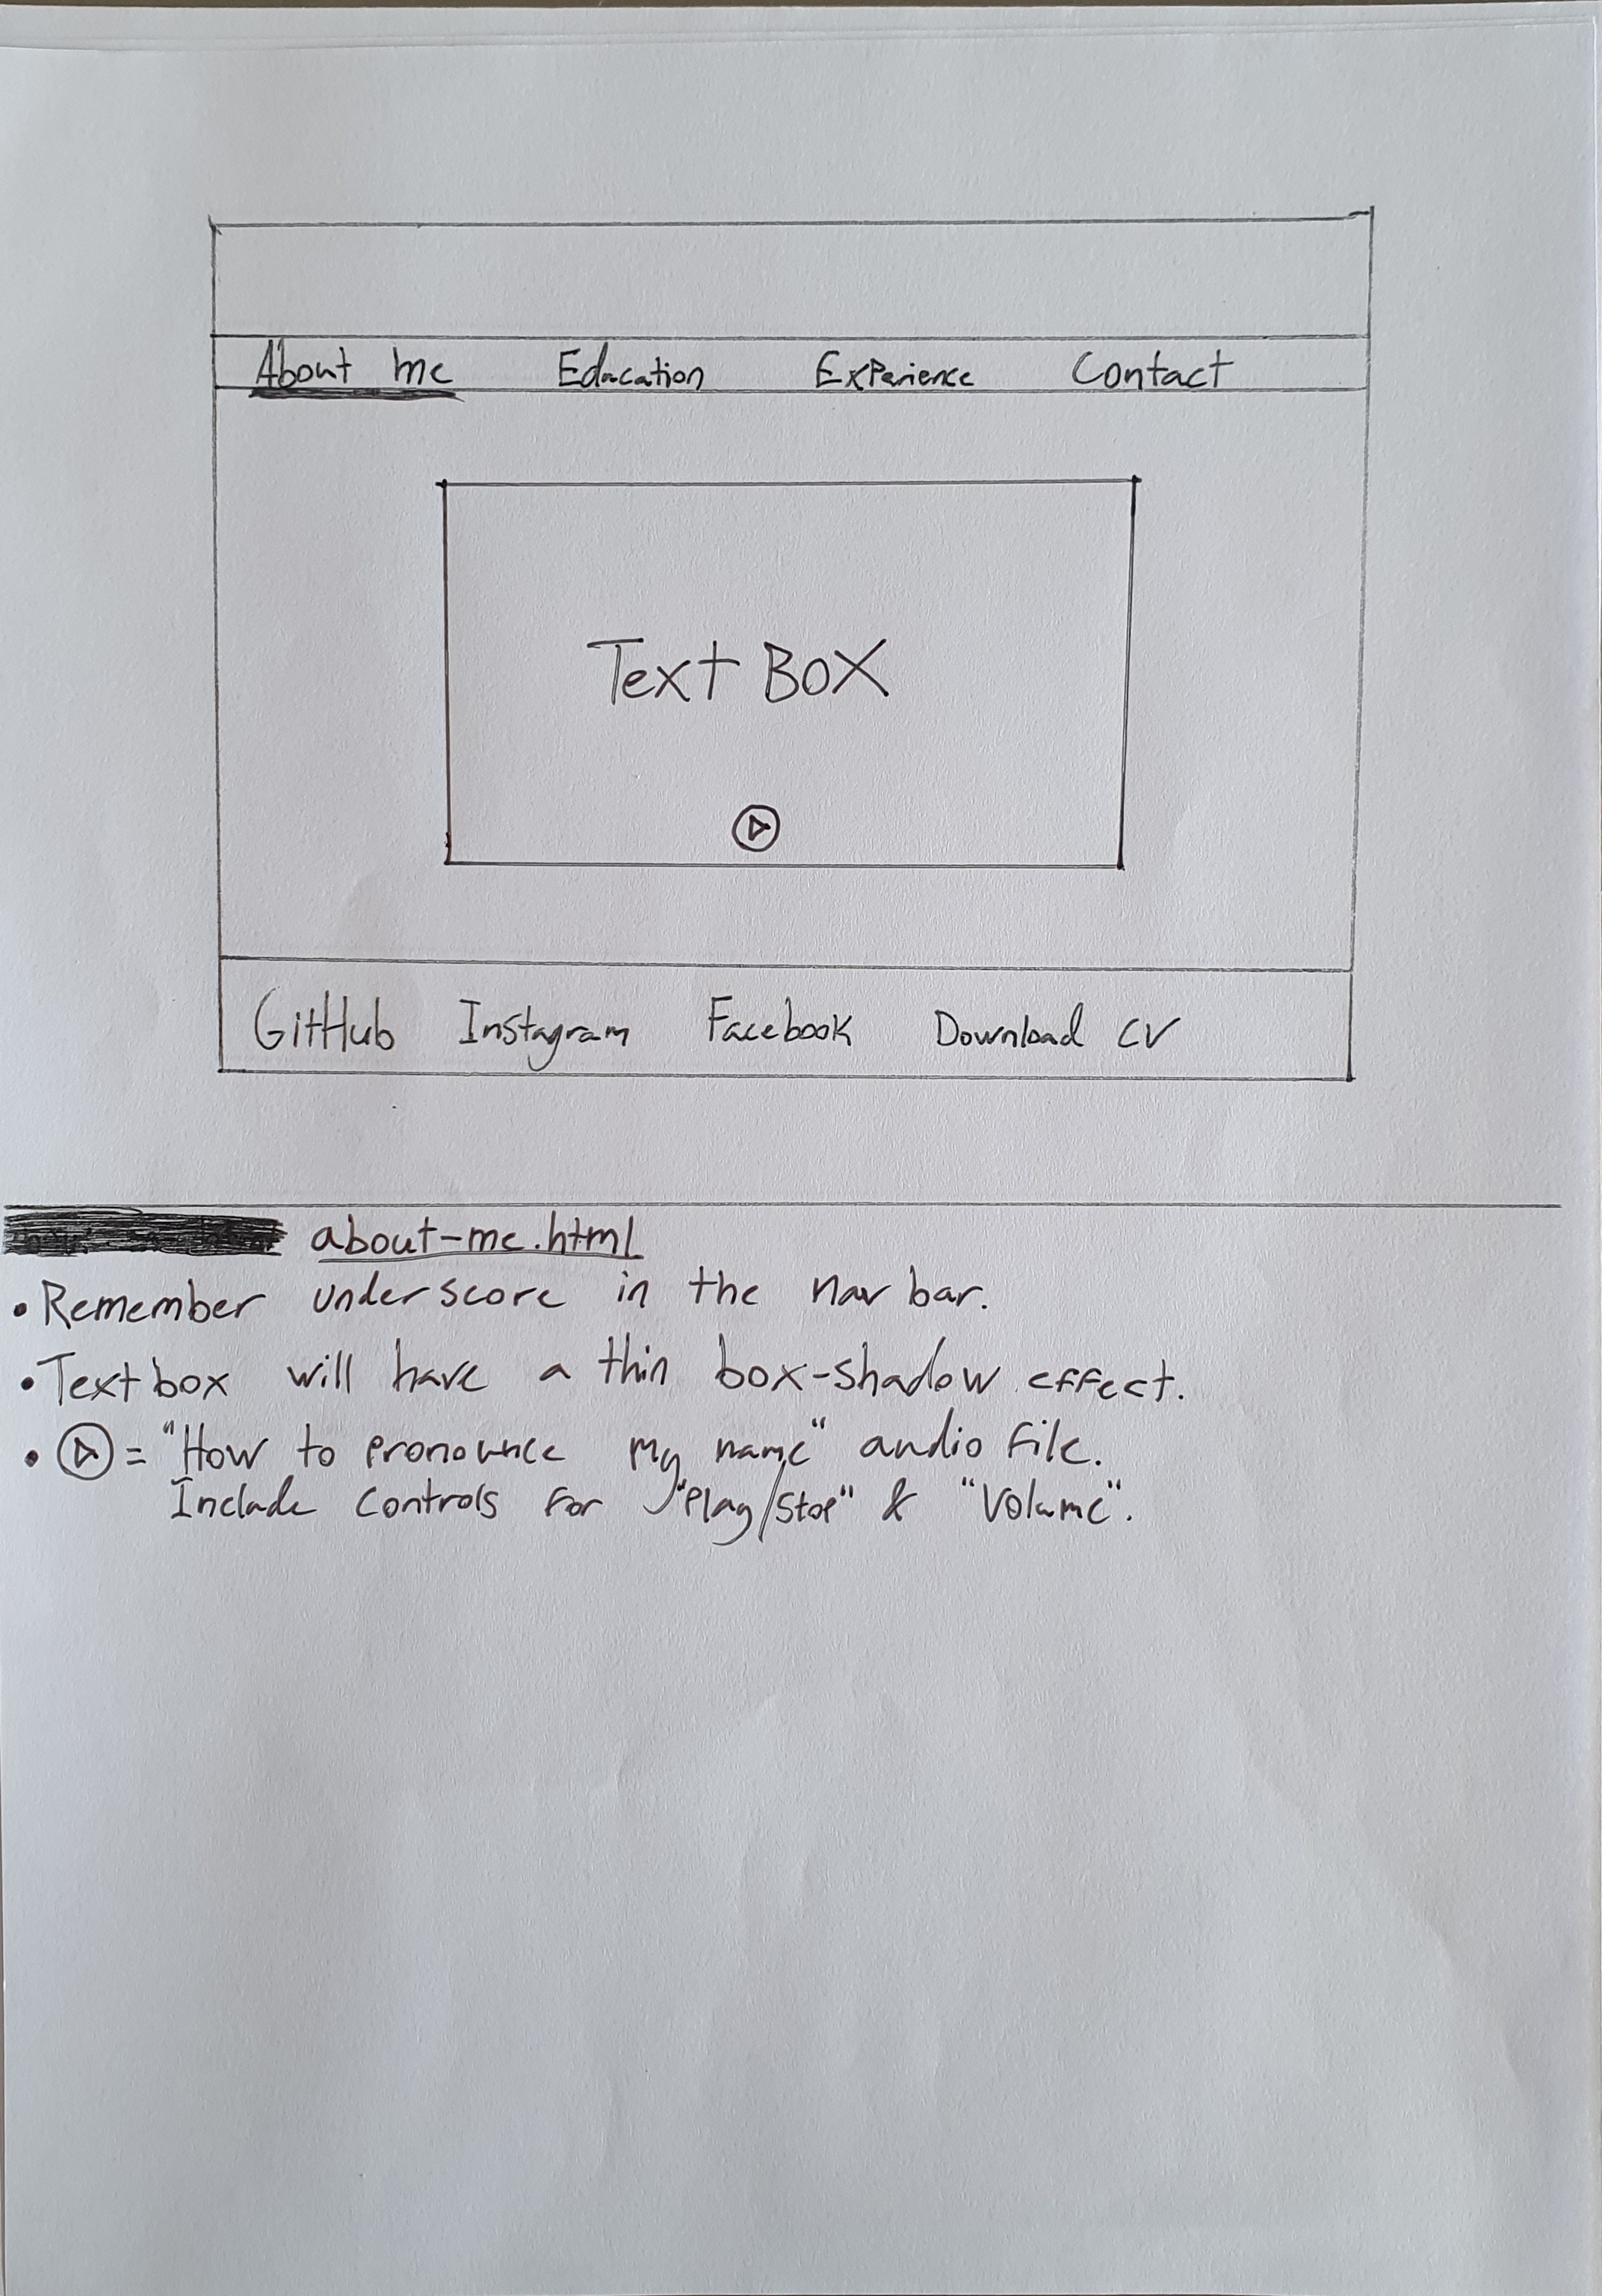 About me Education Experience Contact
Text Box
GitHub Instagram Facebook Download CV
about-me.html
• Remember underscore in the nav bar.
• Textbox will have a thin box-shadow effect.
• = "How to pronounce my name" audio file.
Include controls for "Play/Stop" & "Volume".